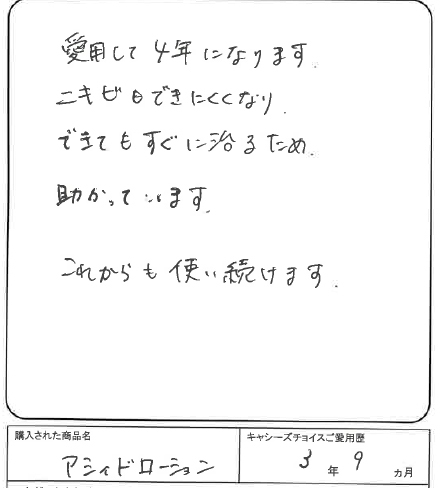 愛用して4年になります.
ニキビもできにくくなり.
できてもすぐに治るため.
助かっています.
これからも使い続けます.
購入された商品名
キャシーズチョイスご愛用歴
アシィドローション
3年9ヵ月